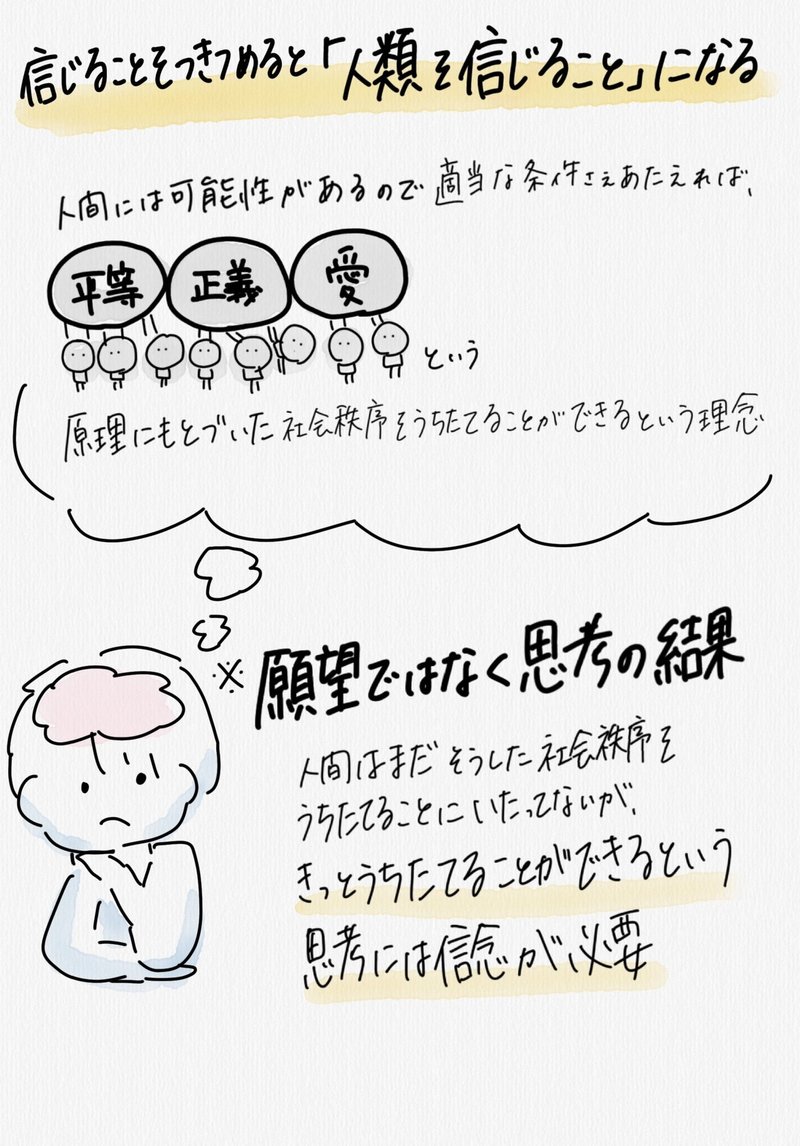 信じることをつきつめると「人類を信じること」になる
人間には可能性があるので適当な条件さえあたえれば、
平等 正義 愛
という
原理にもとづいた社会秩序をうちたてることができるという理念
※願望ではなく思考の結果
人間はまだそうした社会秩序を
うちたてることにいたってないが、
きっとうちたてることができるという
思考には信念が必要